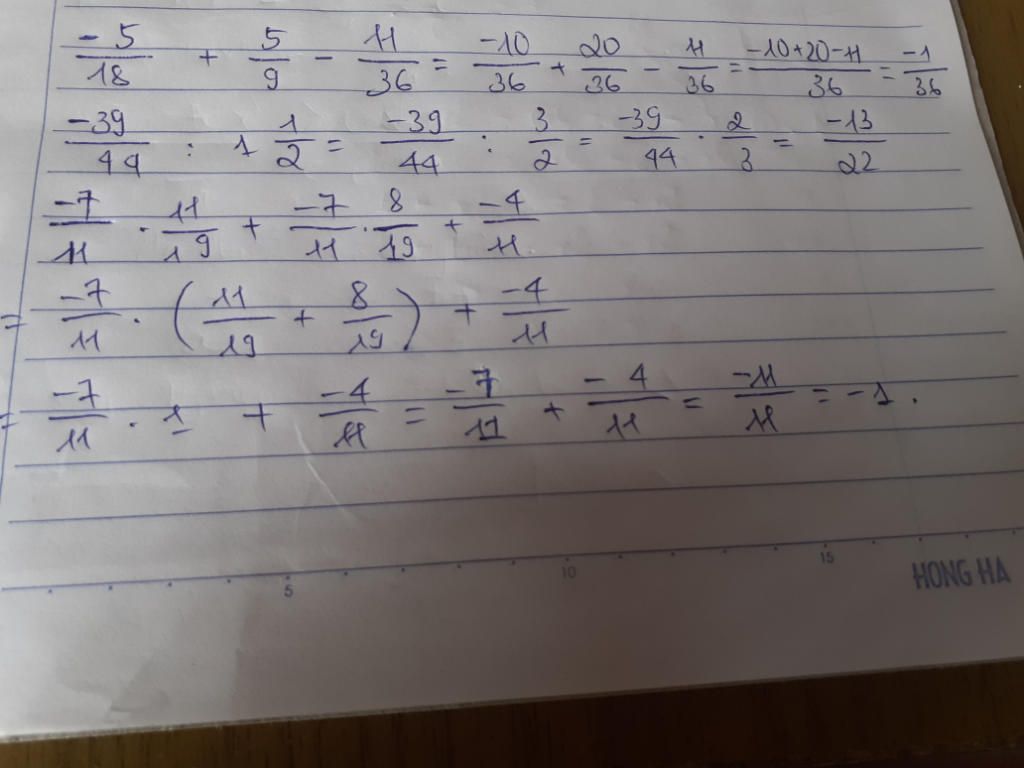 -5/18 + 5/9 - 11/36 = -10/36 + 20/36 - 11/36 = -10+20-11/36 = -1/36
-39/44 : 1 1/2 = -39/44 : 3/2 = -39/44 . 2/3 = -13/22
-7/11 . 11/19 + -7/11 . 8/19 + -4/11
= -7/11 . (11/19 + 8/19) + -4/11
= -7/11 . 1 + -4/11 = -7/11 + -4/11 = -11/11 = -1.
5 10 15 HONG HA